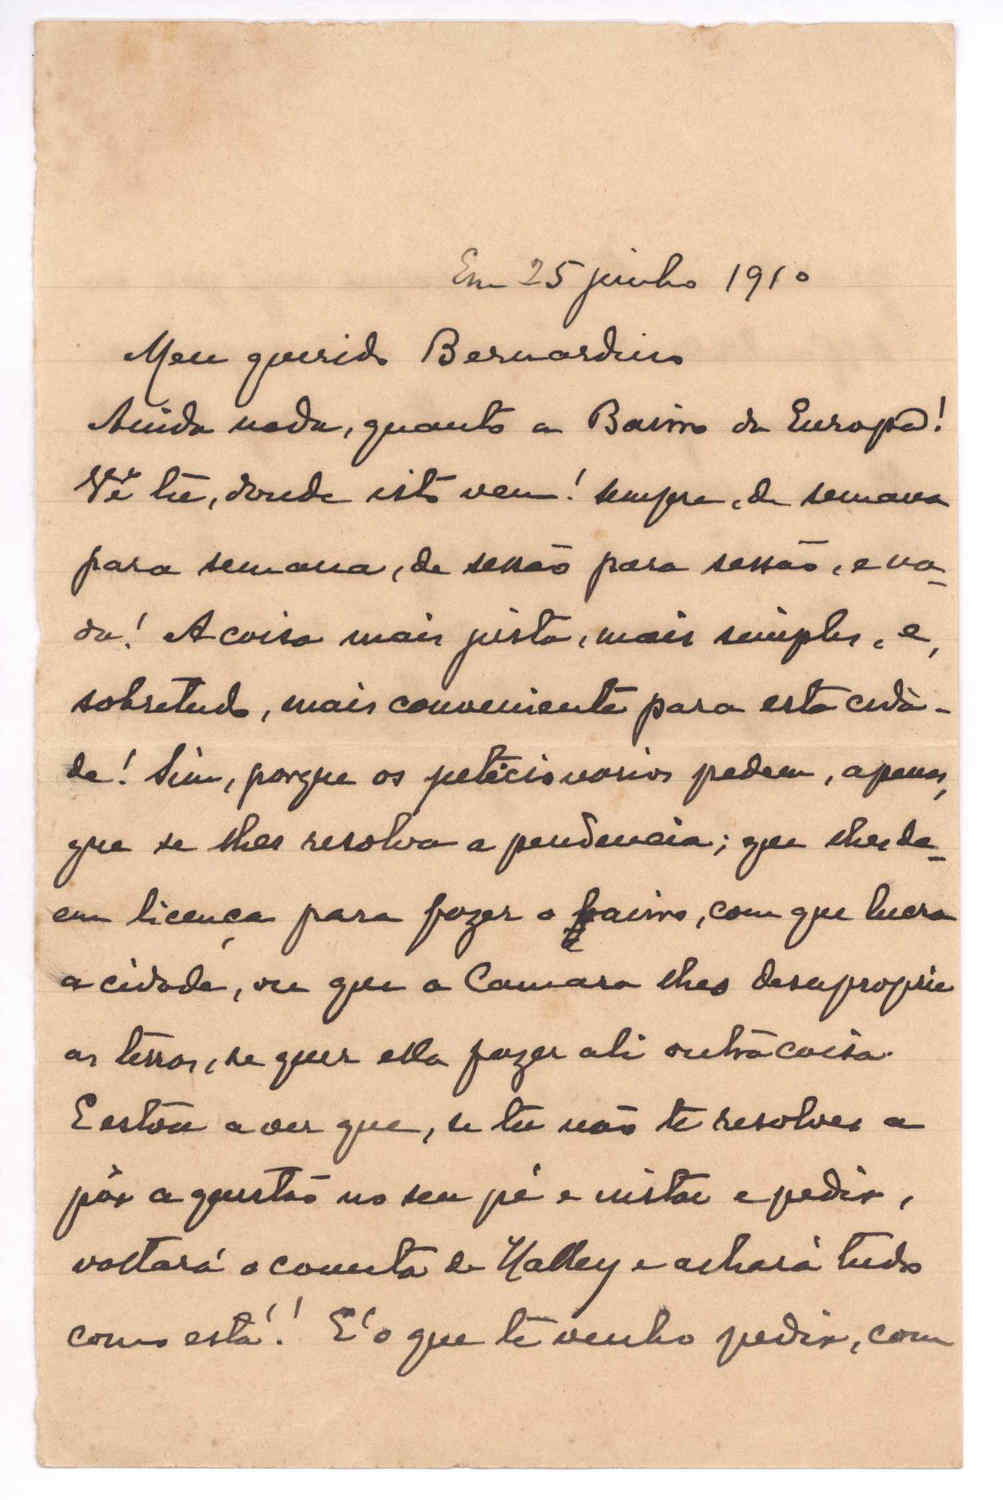 Em 25 junho 1910
Meu querido Bernardino
Ainda nada, quanto a Bairro da Europa!
Vê tu, donde isto vem! Sempre, de semana
para semana, de sessão para sessão, e na-
da! A coisa mais justa, mais simples, e,
sobretudo, mais conveniente para esta cida-
de! Sim, porque os peticionarios pedem, apenas,
que se lhes resolva a pendencia; que lhes de-
em licença para fazer o bairro, com que lucra
a cidade, ou que a Camara lhes desaproprie
as terras, se quer ella fazer ali outra coisa.
E estou a ver que, se tu não te resolves a
pôr a questão no seu pé e instar e pedir,
voltará o cometa de Halley e achará tudo
como está!! E' o que te venho pedir, com